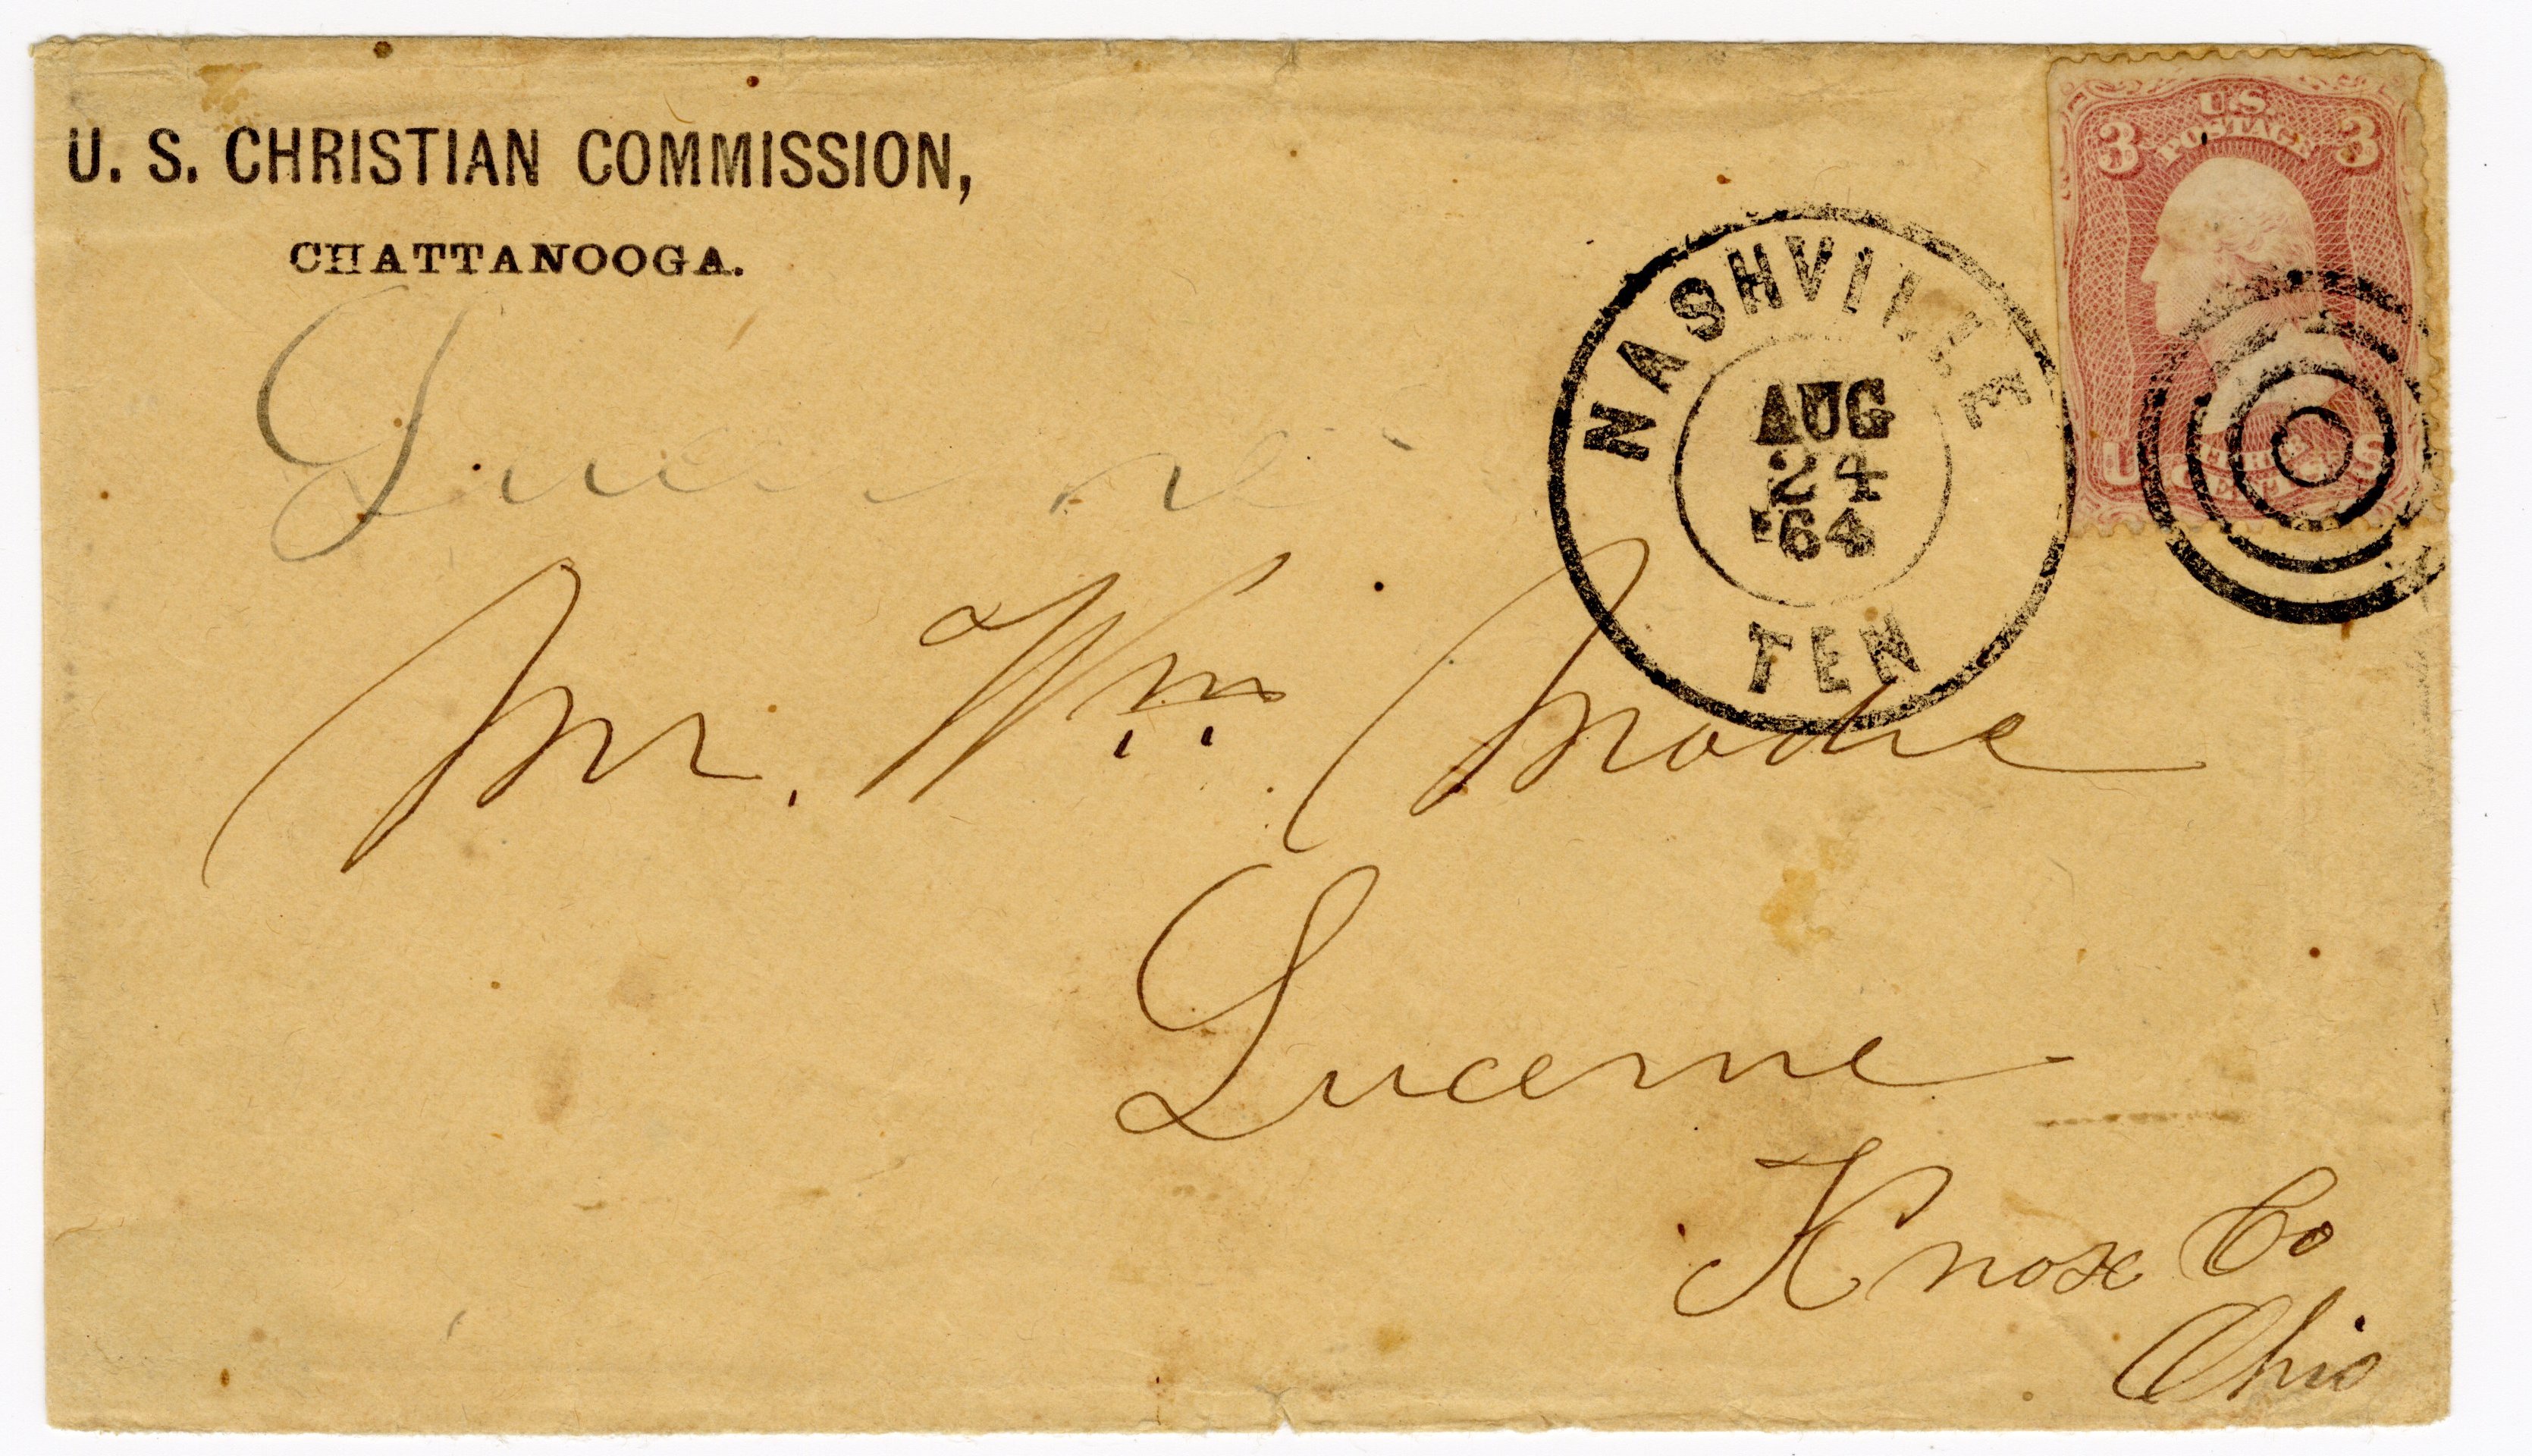 U. S. CHRISTIAN COMMISSION,
CHATTANOOGA.
U.S.
POSTAGE
3 3
U S
THREE
CENTS
NASHVILLE
AUG
24
'64
TEN
Mr. Wm. Modie
Lucerne
Knox Co
Ohio